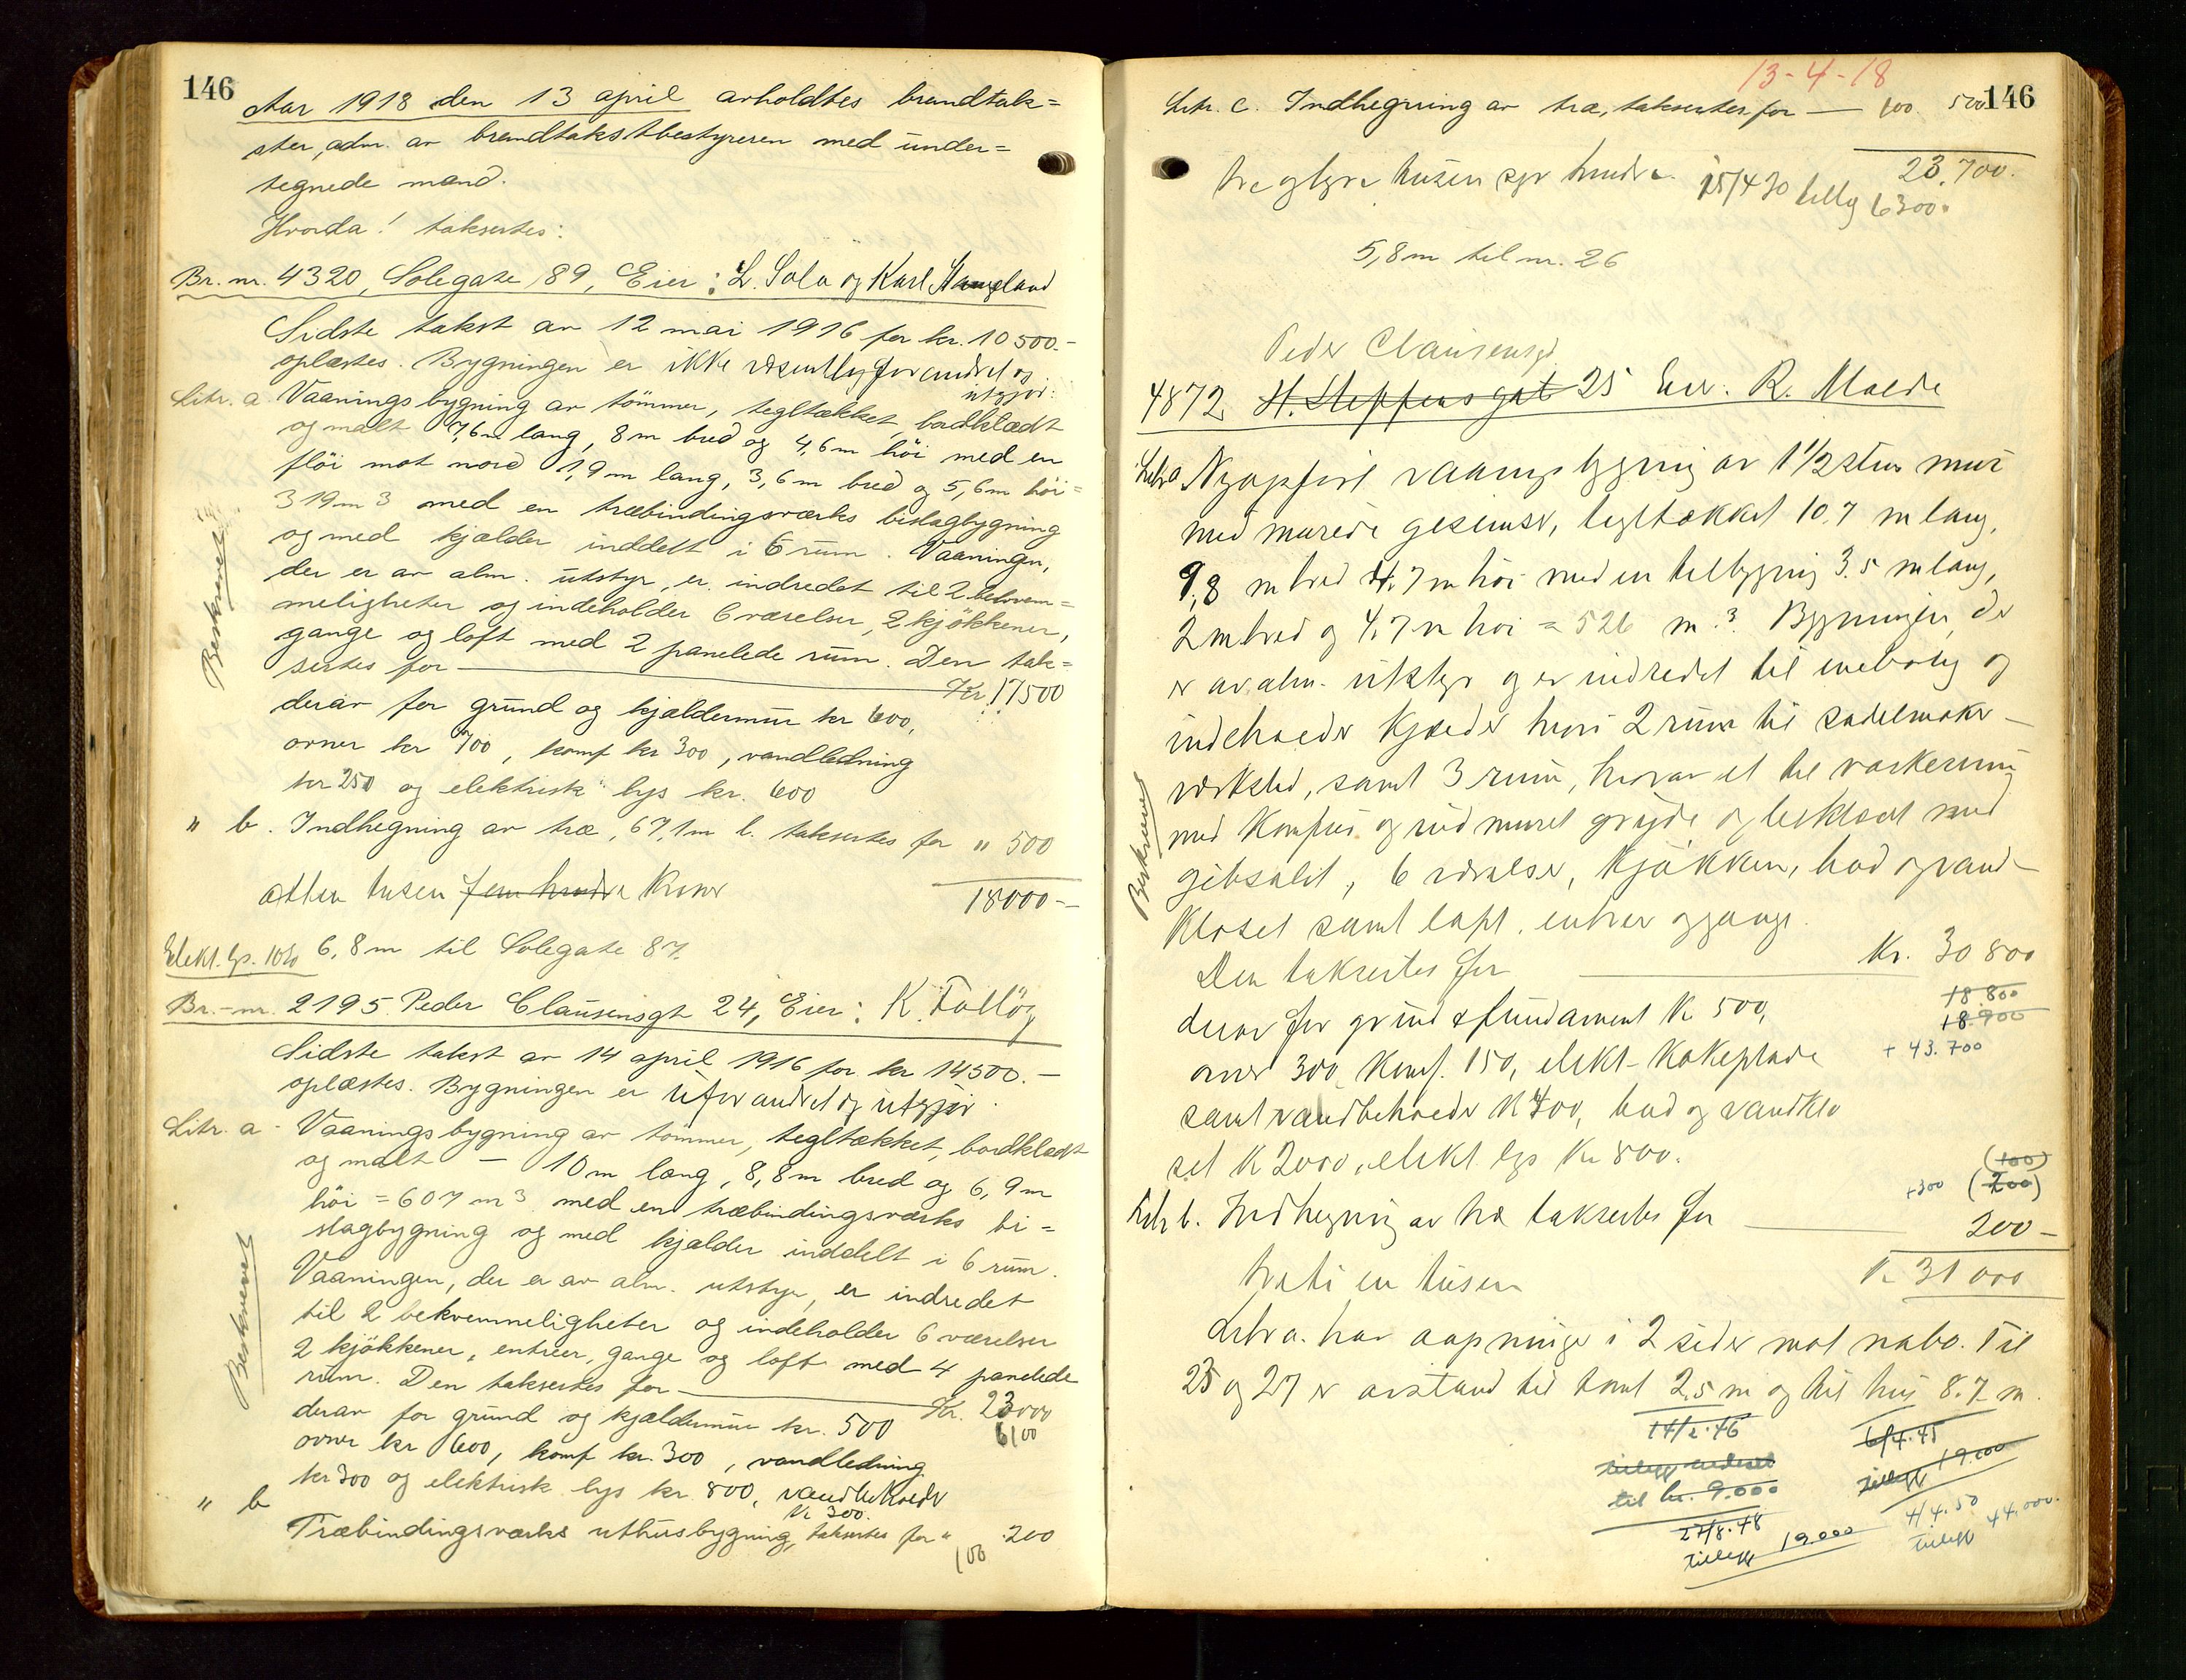 146
Aar 1918 den 13 april avholdtes brandtak=
ster, adm. av brandtakstbestyreren med under=
tegnede mænd.
Hvorda! taksertes:
Br. nr. 4320, Solegate 89, Eier: L. Sola og Karl Stangeland
Sidste takst av 12 mai 1916 for kr. 10500.-
oplæstes. Bygningen er ikke væsentlig forandret og
utgjør:
Litr. a Vaaningsbygning av tømmer, tegltækket, bordklædt
og malt 7,6m lang, 8m bred og 4,6m høi med en
fløi mot nord 1,9m lang, 3,6m bred og 5,6m høi=
319m3 med en træbindingsverks bislagbygning
og med kjælder inddelt i 6 rum. Vaaningen,
der er av alm. utstyr, er indredet til 2 bekvem=
meligheter og indeholder 6 værelser, 2 kjøkkener,
gange og loft med 2 panelede rum. Den tak=
sertes for — Kr. 17500
derav for grund og kjældermur kr 600,
ovner kr 700, komf kr 300, vandledning
kr 250 og elektrisk lys kr. 600
" b. Indhegning av træ, 67,1m l. taksertes for " 500
atten tusen fem hundre Kroner
18000--
Elekt. lys. 6,8m til Solegate 87.
Beskrevet
Br.-nr. 2195 Peder Clausensgt 24, Eier: K. Falløg
Sidste takst av 14 april 1916 for kr 14500.-
oplæstes. Bygningen er uforandret og utgjør.
Litr. a - Vaaningsbygning av tømmer, tegltækket, bordklædt
og malt — 10m lang, 8,8m bred og 6,9m
høi = 607 m3 med en træbindingsverks bi=
slagbygning og med kjælder inddelt i 6 rum.
Vaaningen, der er av alm. utstyr, er indredet
til 2 bekvemmeligheter og indeholder 6 værelser
2 kjøkkener, entreer, gange og loft med 4 panelede
rum. Den taksertes for — Kr. 23000
6100
derav for grund og kjældermur kr. 500
ovner kr 600, komf kr. 300, vandledning
kr 300 og elektrisk lys kr 800, vandbeholder
Kr 300.
" b Træbindingsverks uthusbygning, taksertes for " 200
100
Beskrevet
13-4-18
146
Litr. c. Indhegning av træ, taksertes for — 100. 500
23.700.
treogtyve tusen syv hundre. 15/4 30 tillæg 6300.
5,8m til nr. 26
Peder Clausensgt
4872 H. Steffens gat 25 Eier. R. Molde
Litra a Nyopført vaaningsbygning av 1 1/2 sten mur
med murede gesimser, tegltækket 10.7 m lang,
9,8 m bred 4.7 m høi med en tilbygning 3.5 m lang,
2 m bred og 4.7 m høi = 526 m.3. Bygningen, der
er av alm. utstyr og er indredet til enebolig og
indeholder kjælder hvori 2 rum til sadelmaker-
verksted, samt 3 rum, hvorav et til vaskerum
med komfur og indmuret gryde og beklædt med
gibsalit, 6 værelser, kjøkken, bad og vand-
kloset samt loft, entreer og gange.
Den taksertes for — Kr. 30800
18.800
18.900
+ 43.700
derav for grund & fundament Kr 500,
ovner 300, Komf. 150, elekt- Kokeplade
samt vandbeholder Kr 400, bad og vandklo
set Kr 2000, elekt. lys Kr 800.
(100)
+300 (200)
Litr b. Indhegning av træ taksertes for — 200-
treti en tusen Kr 31000
Litr a. har aapninger i 2 sider mot nabo. Til
23 og 27 er avstand til tomt 2,5 m og til hus 8.7 m.
Beskrevet
14/2.46
tillegg endret
til kr. 9.000
27/8.48
tillegg 19.000
6/4.45
tillegg 19.000
4/4.50
tillegg 44.000.